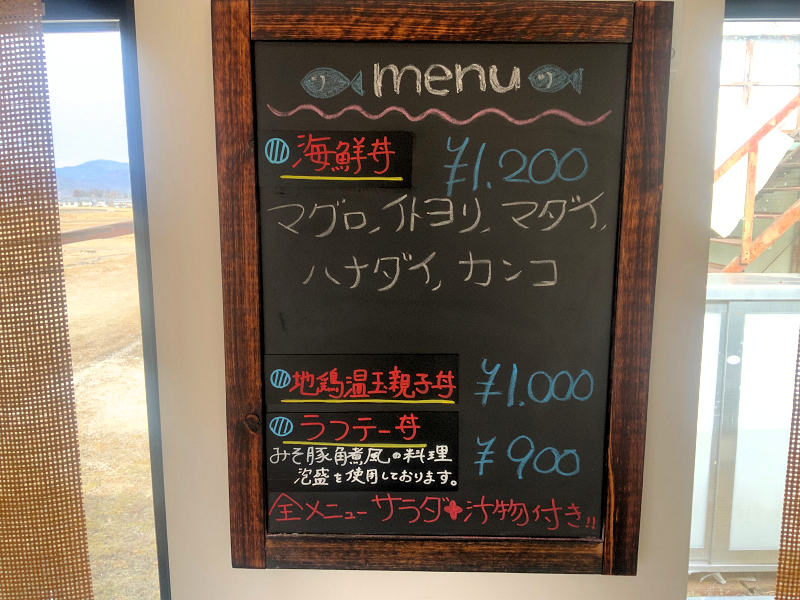 menu
海鮮丼 ¥1.200
マグロ、イトヨリ、マダイ、
ハナダイ、カンコ
地鶏温玉親子丼 ¥1.000
ラフテー丼 ¥900
みそ豚角煮風の料理
泡盛を使用しております。
全メニューサラダ+汁物付き!!